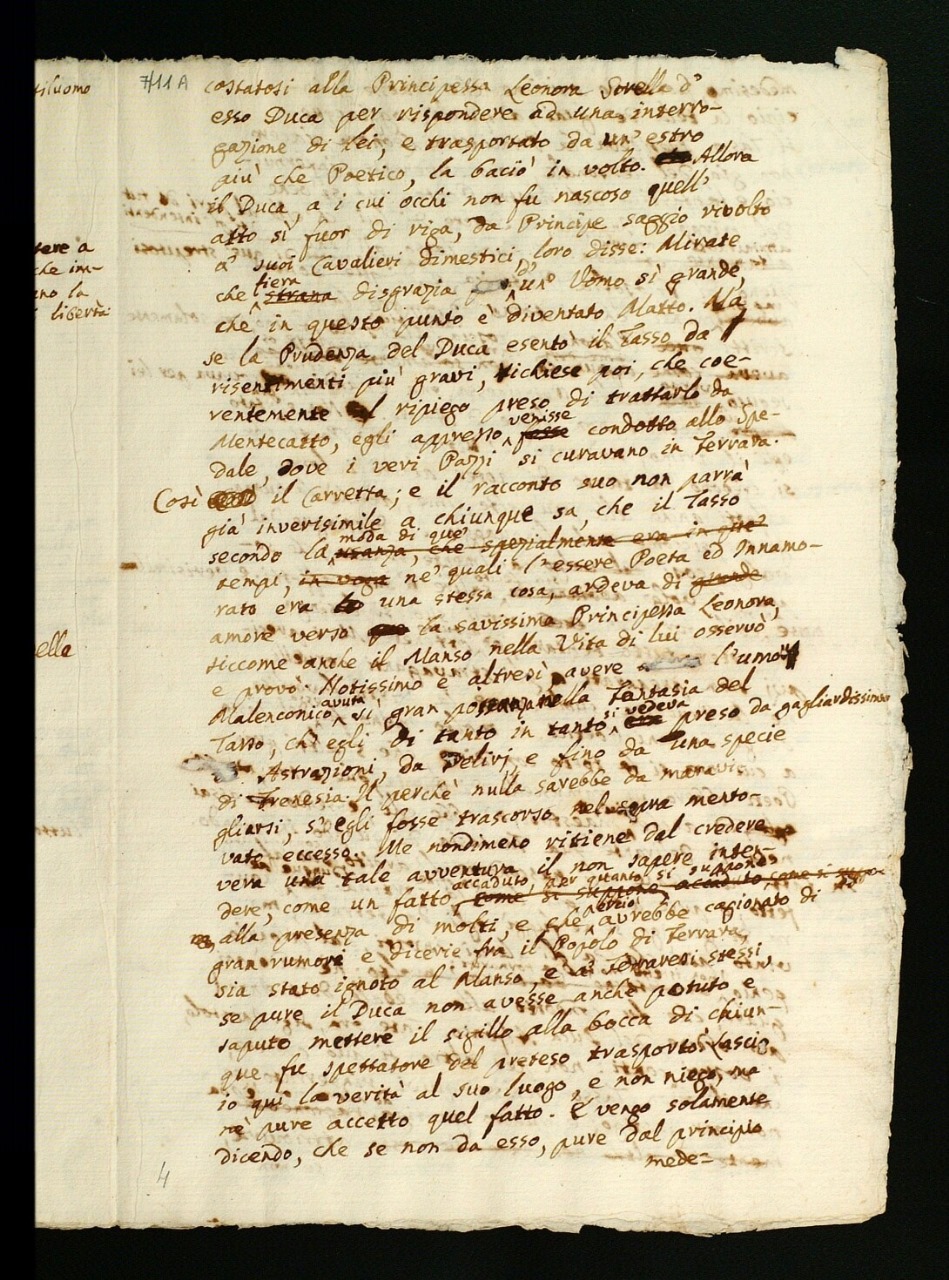 tiluomo
tere a
che im-
ano la
libertà
ella
7/11 A
costatosi alla Principessa Leonora Sorella d'
esso Duca per rispondere ad una interro-
gazione di lei, e trasportato da un' estro
più che Poetico, la baciò in volto. Allora
il Duca, a i cui occhi non fu nascoso quell'
atto sì fuor di riga, da Principe saggio rivolto
a' suoi Cavalieri dimestici, loro disse: Mirate
fiera
che strana disgrazia d' un' Uomo sì grande,
che in questo punto è diventato Matto. Ma
se la Prudenza del Duca esentò il Tasso da
risentimenti più gravi, richiese poi, che coe-
rentemente al ripiego preso di trattarlo da
venisse
Mentecatto, egli appresso fosse condotto allo Spe-
dale, dove i veri Pazzi si curavano in Ferrara.
Così il Carretta; e il racconto suo non parrà
già inverisimile a chiunque sa, che il Tasso
moda di que'
secondo la usanza, che spezialmente era in que'
tempi, in voga ne' quali l'essere Poeta ed Innamo-
rato era una stessa cosa, ardeva di grande
amore verso la savissima Principessa Leonora,
siccome anche il Manso nella Vita di lui osservò,
e provò. Notissimo è altresì avere l'umor
avuta
Malenconico sì gran possanza nella Fantasia del
si vedeva
Tasso, ch'egli di tanto in tanto era preso da gagliardissime
Astrazioni, da Delirj, e fino da una specie
di Frenesia. Il perchè nulla sarebbe da maravi-
gliarsi, s'egli fosse trascorso nel sopra mento-
vato eccesso. Me nondimeno ritiene dal credere
vera una tale avventura il non sapere inten-
accaduto, per quanto si suppone,
dere, come un fatto, come si suppone, accaduto, come si suppo-
perciò
alla presenza di molti, e che avrebbe cagionato di
gran rumori e dicerie fra il Popolo di Ferrara,
sia stato ignoto al Manso, e a' Ferraresi stessi,
se pure il Duca non avesse anche potuto e
saputo mettere il sigillo alla bocca di chiun-
que fu spettatore del preteso trasporto. Lascio
io qui la verità al suo luogo, e non niego, ma
nè pure accetto quel fatto. E vengo solamente
dicendo, che se non da esso, pure dal principio
mede-
4